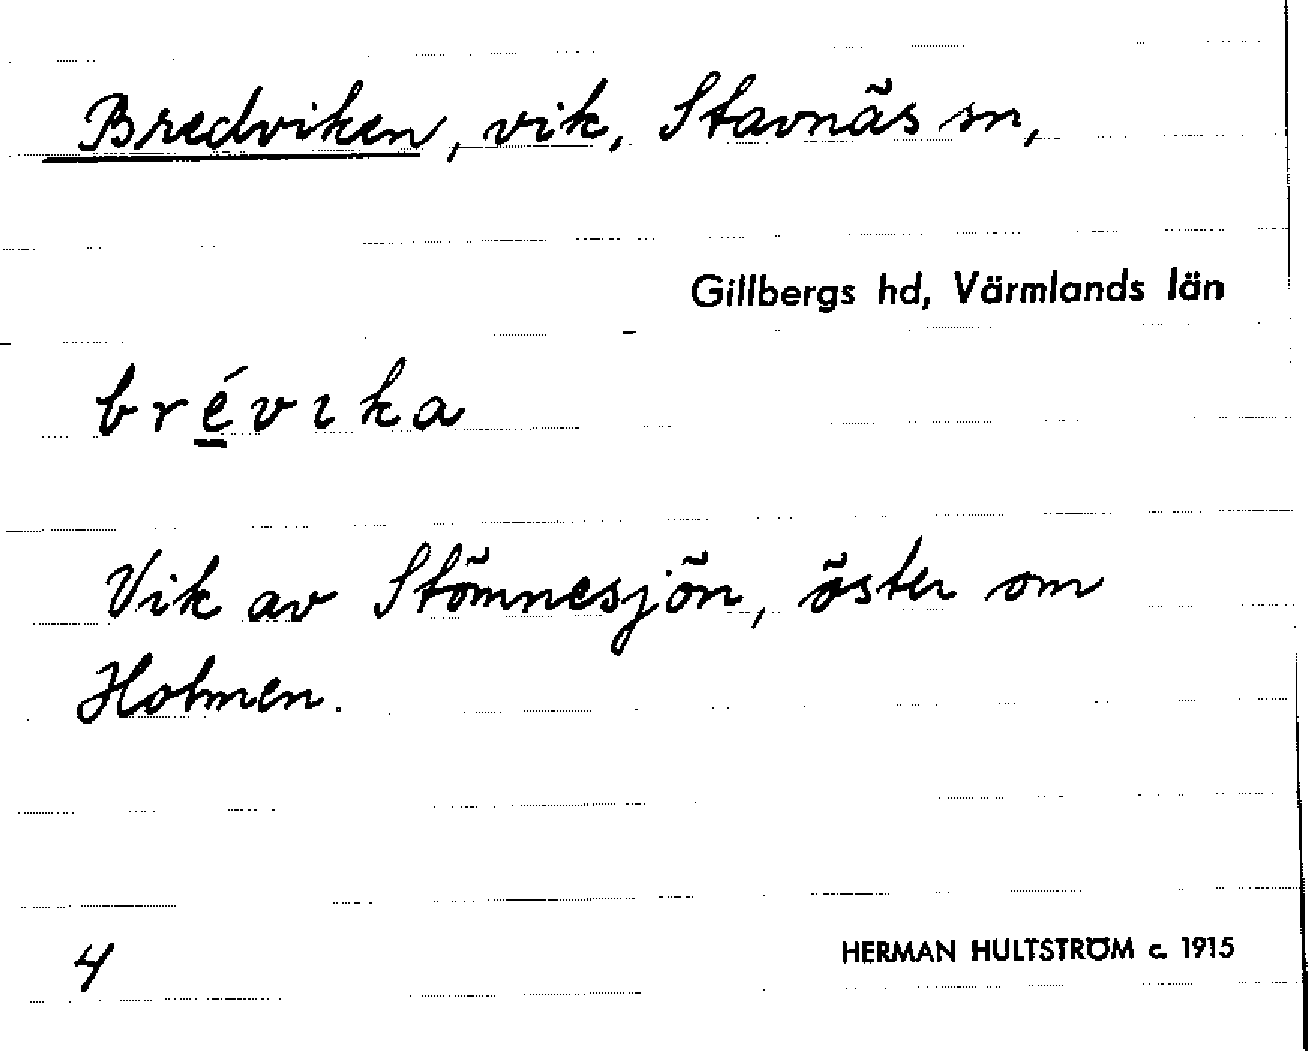 Bredviken, vik, Stavnäs sn,
Gillbergs hd, Värmlands län
brévıka
Vik av Stömnesjön, öster om
Holmen.
4
HERMAN HULTSTRÖM c. 1915